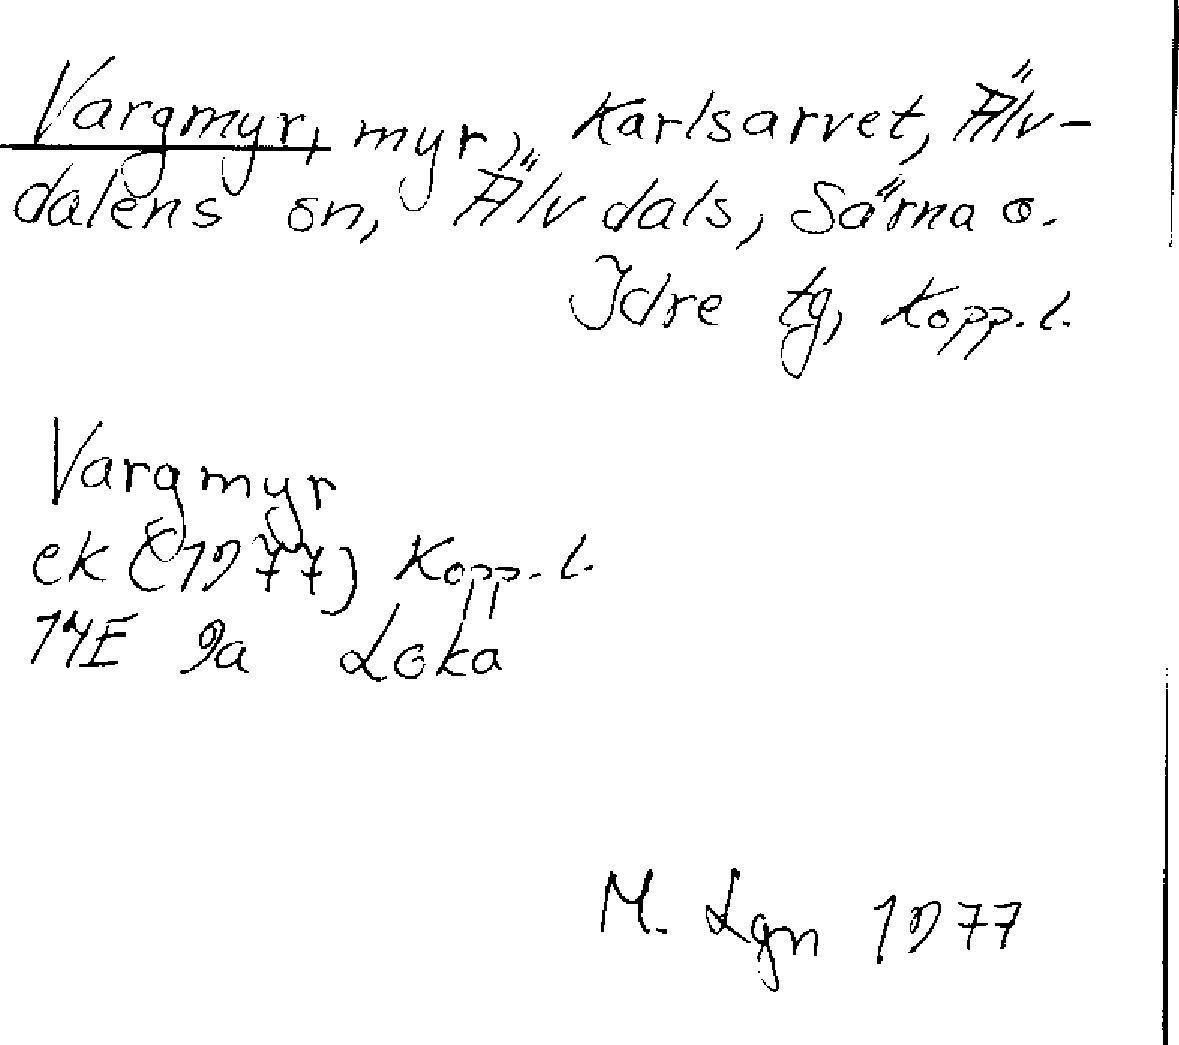 Vargmyr, myr, Karlsarvet, Älv-
dalens sn, Älvdals, Särna o.
Idre tg, Kopp. l.
Vargmyr
ek (1977) Kopp. l.
14E 9a Loka
M. Lgn 1977